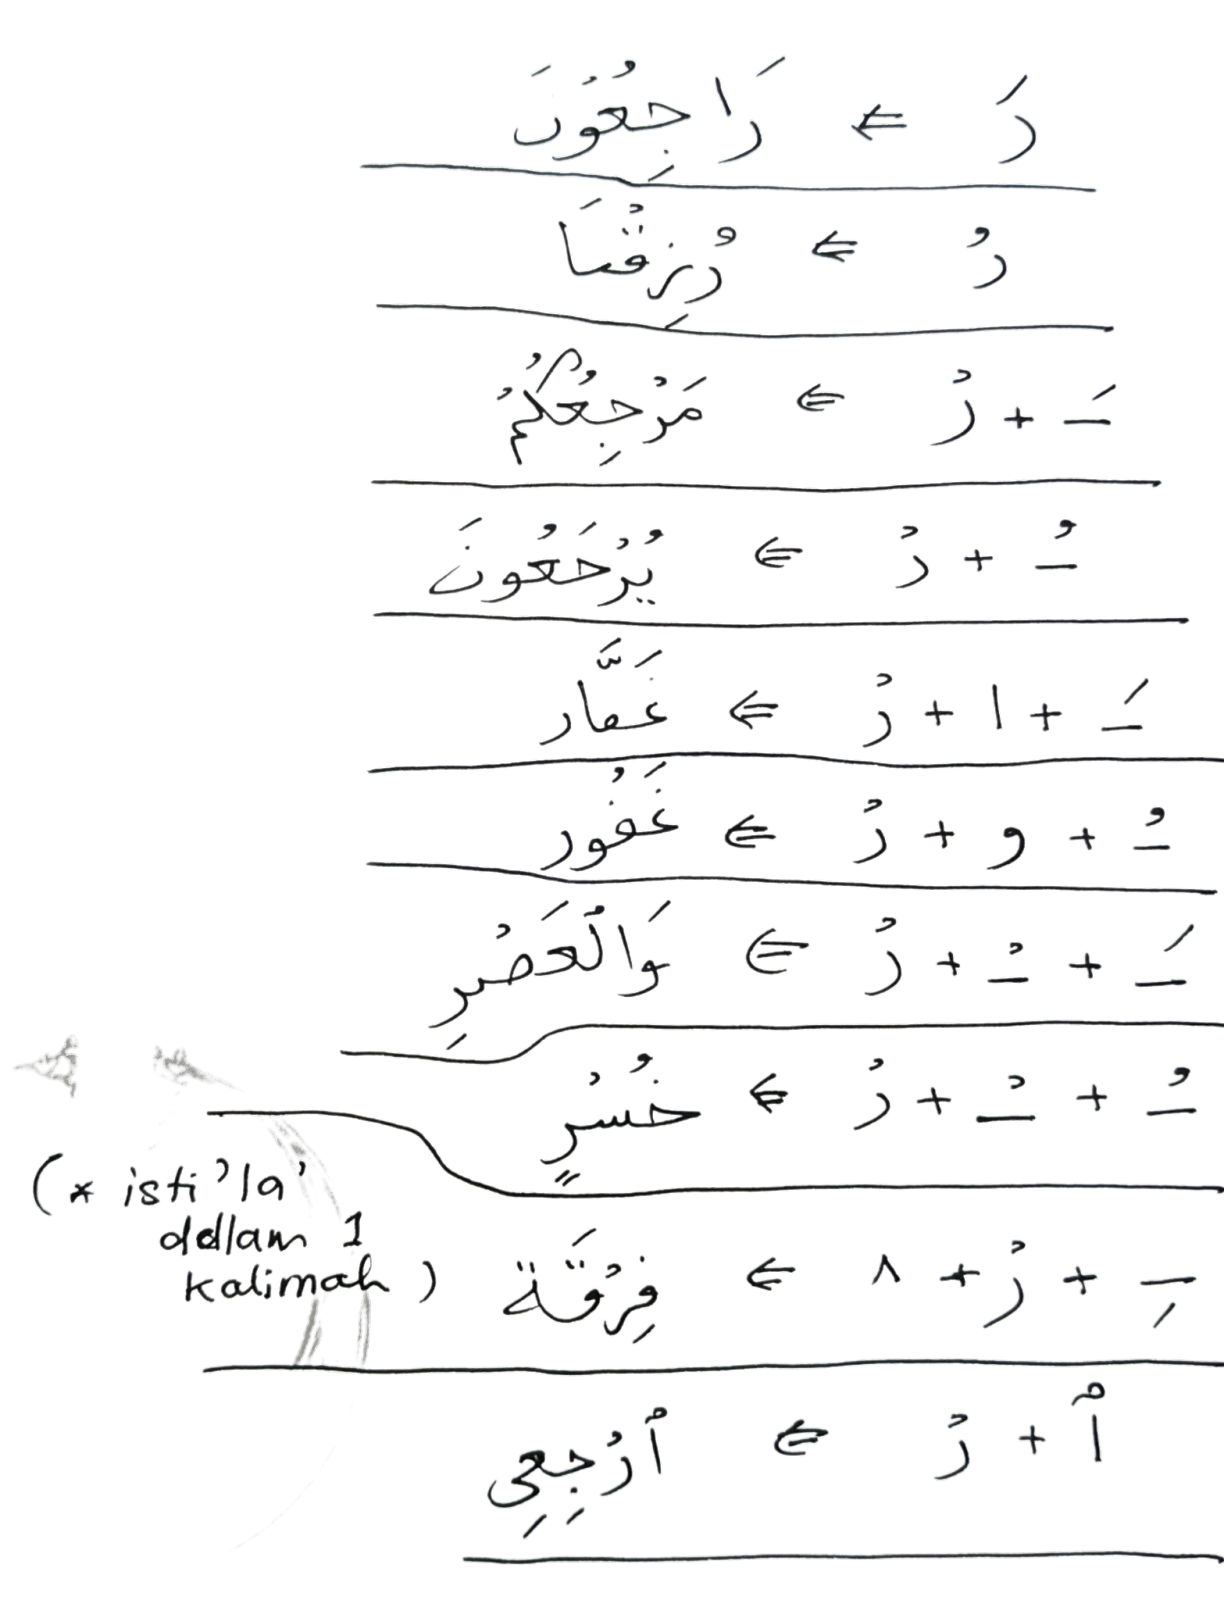 رَ ⇐ رَاجِعُونَ
رُ ⇐ رُزِقْنَا
ـَ + رْ ⇐ مَرْجِعُكُمْ
ـُ + رْ ⇐ يُرْجَعُونَ
ـَ + ا + رْ ⇐ غَفَّار
ـُ + و + رْ ⇐ غَفُور
ـَ + ـْ + رْ ⇐ وَالْعَصْرِ
ـُ + ـْ + رْ ⇐ خُسْرٍ
ـِ + رْ + ٨ ⇐ فِرْقَة
(* isti'la'
dallam 1
kalimah)
ٱ + رْ ⇐ ٱرْجِعِى